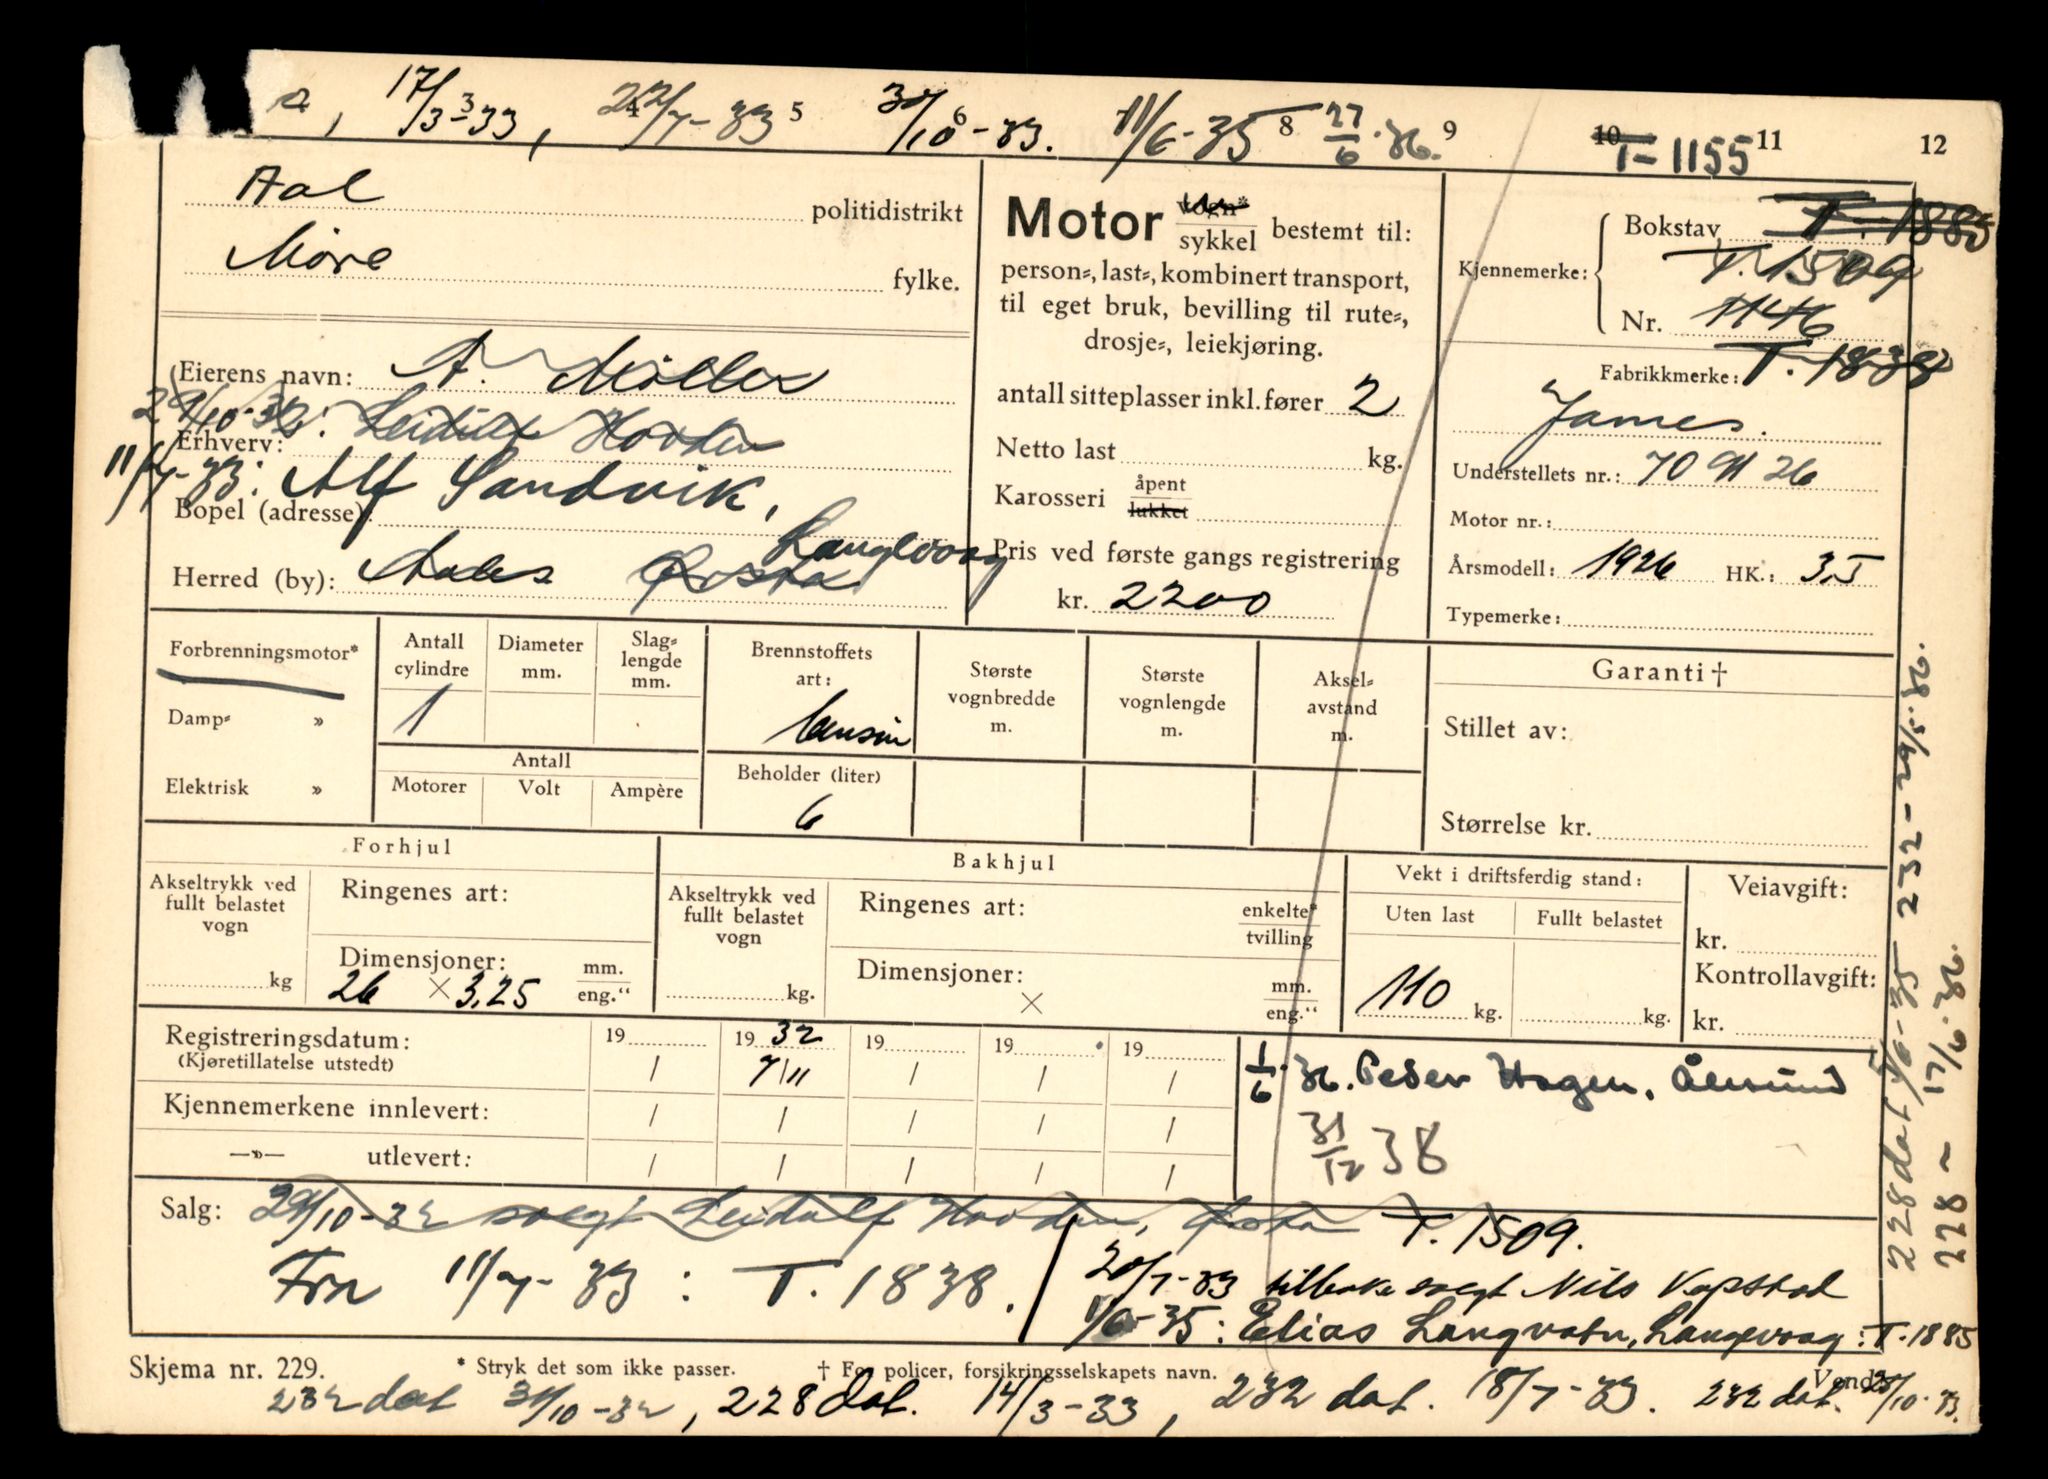 a, 17/3-33, 22/7-33 30/10-33. 11/6-35 27/6·36.
3 4 5 6 8 9 10 11 12
T-1155
Aal politidistrikt
Møre fylke.
Eierens navn: A. Möller
29/10-32: Leidulf Hovden
Erhverv:
11/7-33: Alf Sandvik,
Bopel (adresse):
Langevaag
Herred (by): Aales Ørsta
Motor vogn*
sykkel bestemt til:
person-, last-, kombinert transport,
til eget bruk, bevilling til rute-,
drosje-, leiekjøring.
antall sitteplasser inkl. fører 2
Netto last kg.
Karosseri åpent
lukket
Pris ved første gangs registrering
kr. 2200
Kjennemerke:
Bokstav T-1885
T.1509
Nr. 1146
T.-1838
Fabrikkmerke:
James.
Understellets nr.: 70 91 26
Motor nr.:
Årsmodell: 1926 HK.: 3,5
Typemerke:
Forbrenningsmotor*
Damp- »
Elektrisk »
Antall cylindre
1
Diameter mm.
Slag-
lengde
mm.
Antall
Motorer Volt Ampère
Brennstoffets
art:
bensin
Beholder (liter)
6
Største
vognbredde
m.
Største
vognlengde
m.
Aksel-
avstand
m.
Garanti †
Stillet av:
Størrelse kr.
Forhjul
Akseltrykk ved
fullt belastet
vogn
kg
Ringenes art:
Dimensjoner: mm.
26 × 3,25 eng."
Bakhjul
Akseltrykk ved
fullt belastet
vogn
kg.
Ringenes art: enkelte*
tvilling
Dimensjoner: mm.
× eng."
Vekt i driftsferdig stand:
Uten last Fullt belastet
110 kg. kg.
Veiavgift:
kr.
Kontrollavgift:
kr.
Registreringsdatum: 19 19 32 19 19 19
(Kjøretillatelse utstedt) / 7/11 / / /
Kjennemerkene innlevert: / / / / /
—»— utlevert: / / / / /
1/6·36. Peder Hagen, Ålesund
31/12 38
Salg: 29/10-32 solgt Leidulf Hovden, Ørsta T. 1509.
Fra 11/7-33: T. 1838.
20/7-33 tilbake solgt Nils Vepstad
1/6-35: Elias Langvatn, Langevaag: T-1885
Skjema nr. 229. * Stryk det som ikke passer. † For policer, forsikringsselskapets navn. Vend!
232 dat 31/10-32, 228 dat. 14/3-33, 232 dat. 18/7-33. 232 dat. 25/10-33.
228 dat 5/6-35 232-29/5·36.
228 ~ 17/6·36.